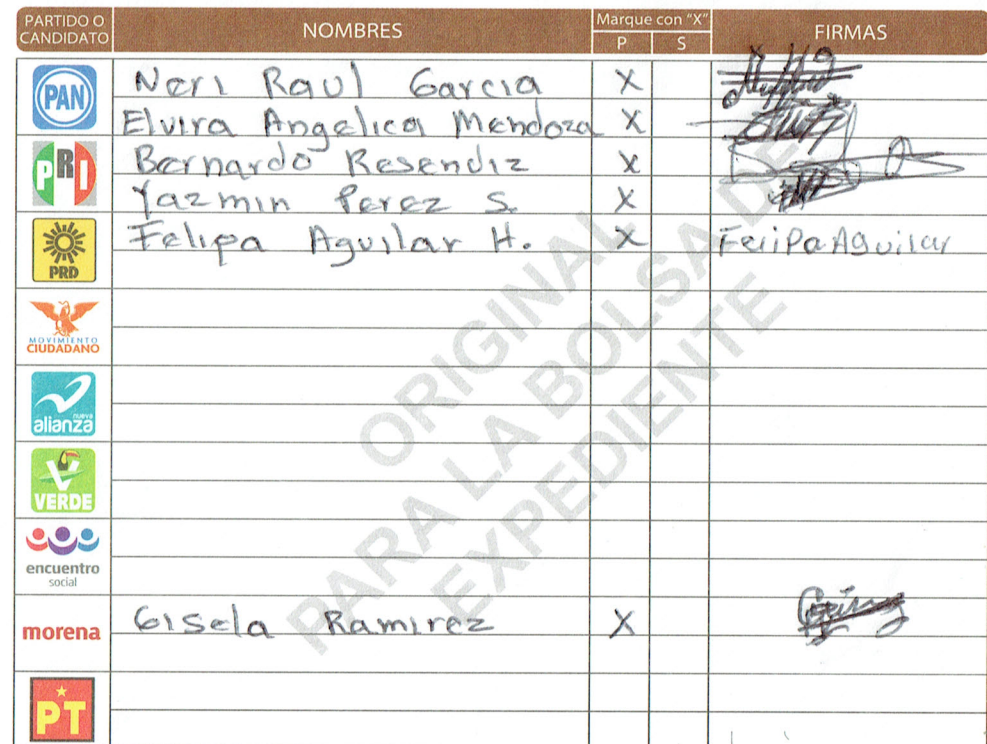 PARTIDO O CANDIDATO NOMBRES Marque con "X" P S FIRMAS
PAN Neri Raul Garcia X
Elvira Angelica Mendoza X
PRI Bernardo Resendiz X
Yazmin Perez S. X
PRD Felipa Aguilar H. X Felipa Aguilar
MOVIMIENTO CIUDADANO
nueva alianza
VERDE
encuentro social
morena Gisela Ramirez X
PT
ORIGINAL
PARA LA BOLSA DE
EXPEDIENTE